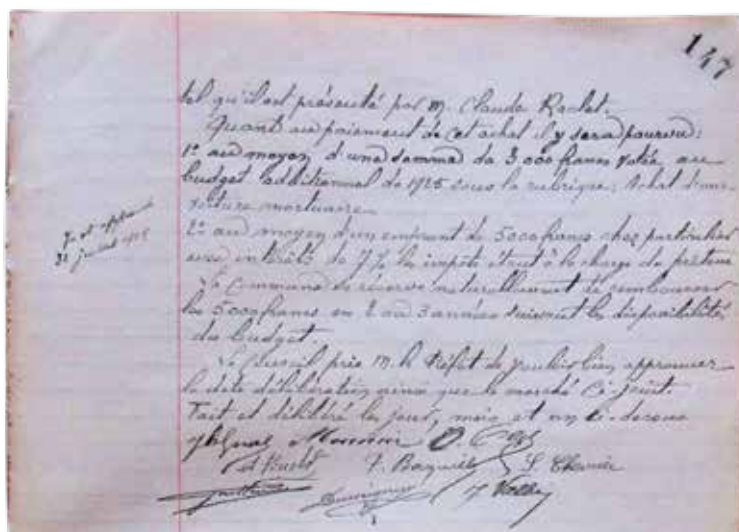 147
tel qu'il est présenté par M. Claude Rochet.
Quant au paiement de cet achat il y sera pourvu:
1° au moyen d'une somme de 3 000 francs votée au
budget additionnel de 1925 sous la rubrique: Achat d'une
voiture mortuaire.
2° au moyen d'un emprunt de 5000 francs chez particulier
avec intérêts de 7% les impôts étant à la charge du prêteur
La Commune se réserve naturellement de rembourser
les 5000 francs en 2 ou 3 années suivant les disponibilités
du budget.
Le Conseil prie M. le Préfet de vouloir bien approuver
la dite délibération ainsi que le marché ci-joint.
Fait et délibéré les jour, mois et an ci-dessus
Vu et approuvé
31 juillet 1925
Monnier
F. Baquiès